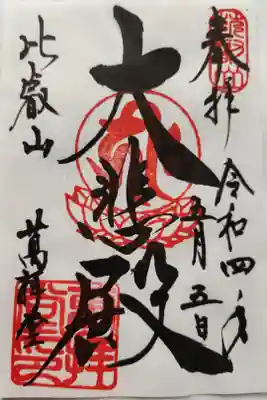 奉拝 令和四年
五月五日
大悲殿
比叡山
萬拝堂